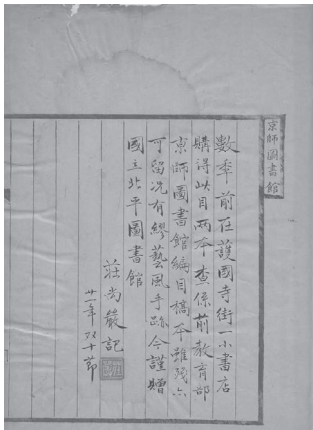 京師圖書館
數年前在護國寺街一小書店
購得此目兩本查係前教育部
京師圖書館編目稿本雖殘亦
可留况有繆藝風手跡今謹贈
國立北平圖書館
莊尚嚴記
廿一年双十節